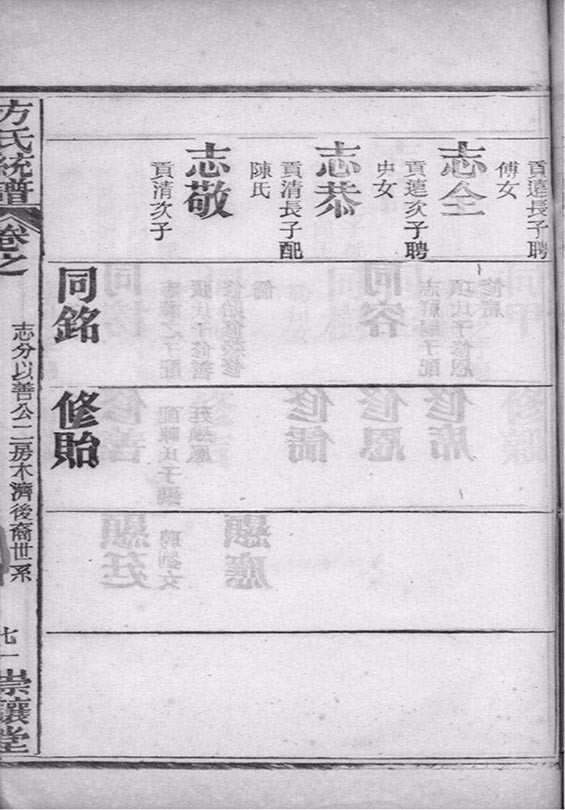 貢蓮長子聘
傅女
志全
貢蓮次子聘
史女
志恭
貢清長子配
陳氏
志敬
貢清次子
同銘
修貽
方氏統譜
卷之
志分以善公二房木濟後裔世系
七一
崇讓堂